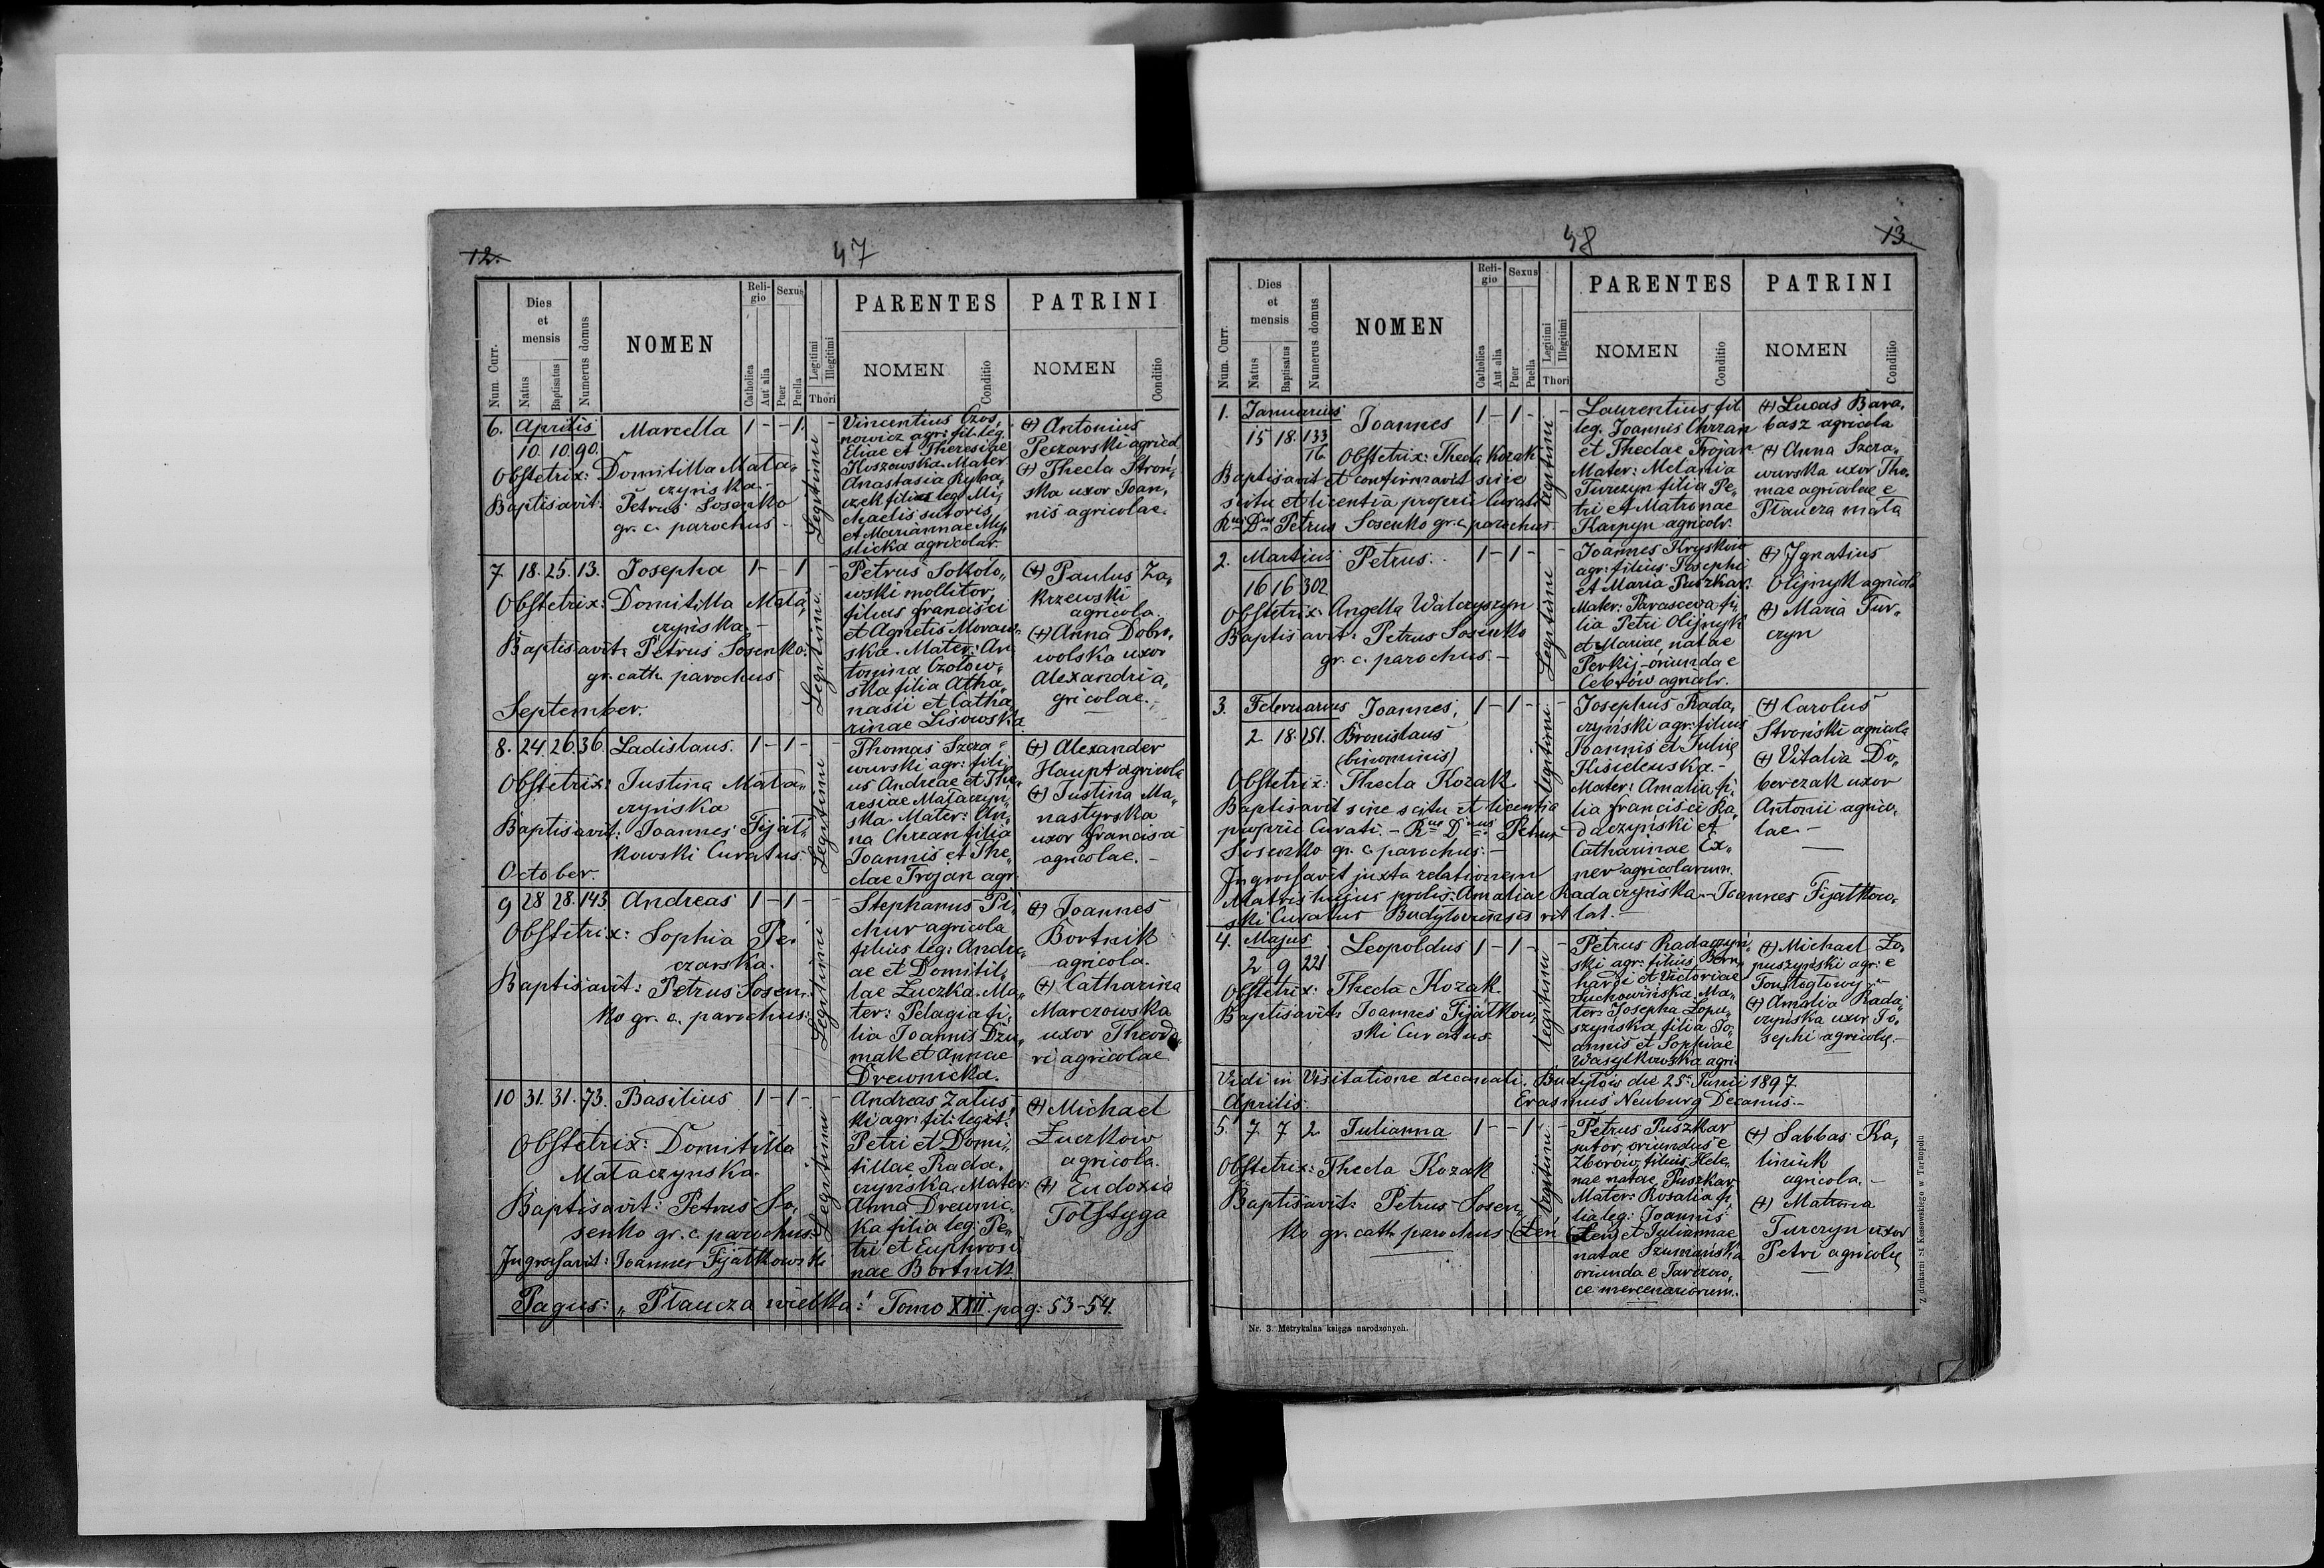 12.
47
Num. Curr.
Dies et mensis
Natus
Baptisatus
Numerus domus
NOMEN
Religio
Catholica
Aut alia
Sexus
Puer
Puella
Legitimi
Illegitimi
Thori
PARENTES
NOMEN
Conditio
PATRINI
NOMEN
Conditio
6. Aprilis
10. 10. 90.
Marcella 1 - - 1. -
Obstetrix: Domitilla Mała„
czyńska.-
Baptisavit: Petrus Sosenko
gr. c. parochus -
Legitimi
Vincentius Czos„
nowicz agr: fil. leg.
Eliae et Theresiae
Koszowska. Mater
Anastasia Ryba„
czek filia leg. Mi„
chaelis sutoris,
et Mariannae My„
slicka agricolar.
(+) Antonius
Peczarski agricol.
(+) Thecla Stroń„
ska uxor Joan„
nis agricolae.
7. 18. 25. 13. Josepha 1 - - 1 -
Obstetrix: Domitilla Mała„
czyńska.-
Baptisavit: Petrus Sosenko.
gr. cath. parochus
September.
Legitimi
Petrus Sokoło„
wski mollitor,
filius Francisci
et Agnetis Moraw„
ska. Mater: An„
tonina Czołow„
ska filia Atha„
nasii et Catha„
rinae Lisowska.
(+) Paulus Za„
krzewski
agricola.
(+) Anna Dobro„
wolska uxor
Alexandri a„
gricolae.-
8. 24. 26. 36. Ladislaus. 1 - 1 - -
Obstetrix: Justina Mała„
czyńska
Baptisavit: Joannes Fijał„
kowski Curatus.
October.
Legitimi
Thomas Szcza„
wurski agr: fili„
us Andreae et The„
resiae Małaczyń„
ska. Mater: An„
na Chrzan filia
Joannis et The„
clae Trojan agr.
(+) Alexander
Haupt agricola
(+) Justina Ma„
nastyrska
uxor Francisci
agricolae.-
9 28 28. 143. Andreas 1 - 1 - -
Obstetrix: Sophia Pe„
czarska.
Baptisavit: Petrus Sosen„
ko gr. c. parochus.
Legitimi
Stephanus Pi„
chur agricola
filius leg: Andre„
ae et Domitil„
lae Łuczka. Ma„
ter: Pelagia fi„
lia Joannis Dziu„
mak et Annae
Drewnicka.
(+) Joannes
Bortnik
agricola.
(+) Catharina
Marczowska
uxor Theodo„
ri agricolae.
10 31. 31. 73. Basilius 1 - 1 - -
Obstetrix: Domitilla
Małaczyńska.
Baptisavit: Petrus So„
senko gr. c. parochus.
Ingrossavit: Joannes Fijałkowski
Legitimi
Andreas Załus„
ki agr: fil: legit:
Petri et Domi„
tillae Rada„
czyńska. Mater:
Anna Drewnic„
ka filia leg: Pe„
tri et Euphrosi„
nae Bortnik
(+) Michael
Łuczkow
agricola.
(+) Eudoxia
Tołstyga
Pagus: „Płaucza wielka." Tomo XXIII. pag: 53-54.
48
13.
Num. Curr.
Dies et mensis
Natus
Baptisatus
Numerus domus
NOMEN
Religio
Catholica
Aut alia
Sexus
Puer
Puella
Legitimi
Illegitimi
Thori
PARENTES
NOMEN
Conditio
PATRINI
NOMEN
Conditio
1. Januarius
15 18. 133
16
Joannes 1 - 1 - -
Obstetrix: Thecla Kozak
Baptisavit et confirmavit sine
scitu et licentia proprii Curati
Rus Dnus Petrus Sosenko gr. c. parochus
Legitimi
Laurentius fil.
leg. Joannis Chrzan
et Theclae Trojan.
Mater: Melania
Turczyn filia Pe„
tri et Matronae
Karpyn agricolr.
(+) Lucas Bara„
basz agricola
(+) Anna Szcza„
wurska uxor Tho„
mae agricolae e
Płaucza mała
2. Martius
16 16 302
Petrus. 1 - 1 - -
Obstetrix: Angella Walczyszyn
Baptisavit: Petrus Sosenko
gr. c. parochus.-
Legitimi
Joannes Kryskow
agr: filius Josephi
et Maria Puszkar.
Mater: Parasceva fi„
lia Petri Olijnyk
et Mariae, natae
Perkij - oriunda e
Cebrów agricolr.
(+) Ignatius
Olijnyk agricola
(+) Maria Tur„
czyn
3. Februarius
2 18. 251.
Joannes, 1 - 1 - -
Bronislaus
(binominis)
Obstetrix: Thecla Kozak
Baptisavit sine scitu et licentia
proprii Curati.- Rus Dnus Petrus
Sosenko gr. c. parochus.-
Ingrossavit juxta relationem
Matris hujus prolis: Amaliae Radaczyńska - Joannes Fijałkow„
ski Curatus Budyłoviensis rit. lat.-
Legitimi
Josephus Rada„
czyński agr: filius
Joannis et Julię
Kisielewska.-
Mater: Amalia fi„
lia Francisci Ra„
daczyński et
Catharinae Ex„
ner agricolarum.
(+) Carolus
Stroński agricola
(+) Vitalia Do„
berczak uxor
Antonii agrico„
lae -
4. Majus
2 9 221
Leopoldus 1 - 1 - -
Obstetrix: Thecla Kozak
Baptisavit: Joannes Fijałkow„
ski Curatus.
Legitimi
Petrus Radaczyń„
ski agr: filius Bern„
hardi et Victoriae
Suchowińska Ma„
ter: Josepha Łopu„
szyńska filia Jo„
annis et Sophiae
Wasylkowska agric.
(+) Michael Ło„
puszyński agr: e
Toustogłowy -
(+) Amalia Rada„
czyńska uxor Jo„
sephi agricolę.-
Vidi in Visitatione decanali. Budyłow die 25 Junii 1897
Erasmus Neuburg Decanus.-
Aprilis.
5. 7 7 2 Julianna 1 - - 1 -
Obstetrix: Thecla Kozak
Baptisavit: Petrus Sosen„
ko gr. cath. parochus
Legitimi
Petrus Puszkar
sutor, oriundus e
Zborow, filius Hele„
nae natae Puszkar
Mater: Rosalia fi„
lia leg: Joannis
(Łeń) et Juliannae
natae Szumańska
oriunda e Jarczow„
ce mercenariorum.
(+) Sabbas Ka„
liniuk
agricola.-
(+) Matrona
Turczyn uxor
Petri agricolę
Nr. 3. Metrykalna księga narodzonych.
Z drukarni St Kossowskiego w Tarnopolu